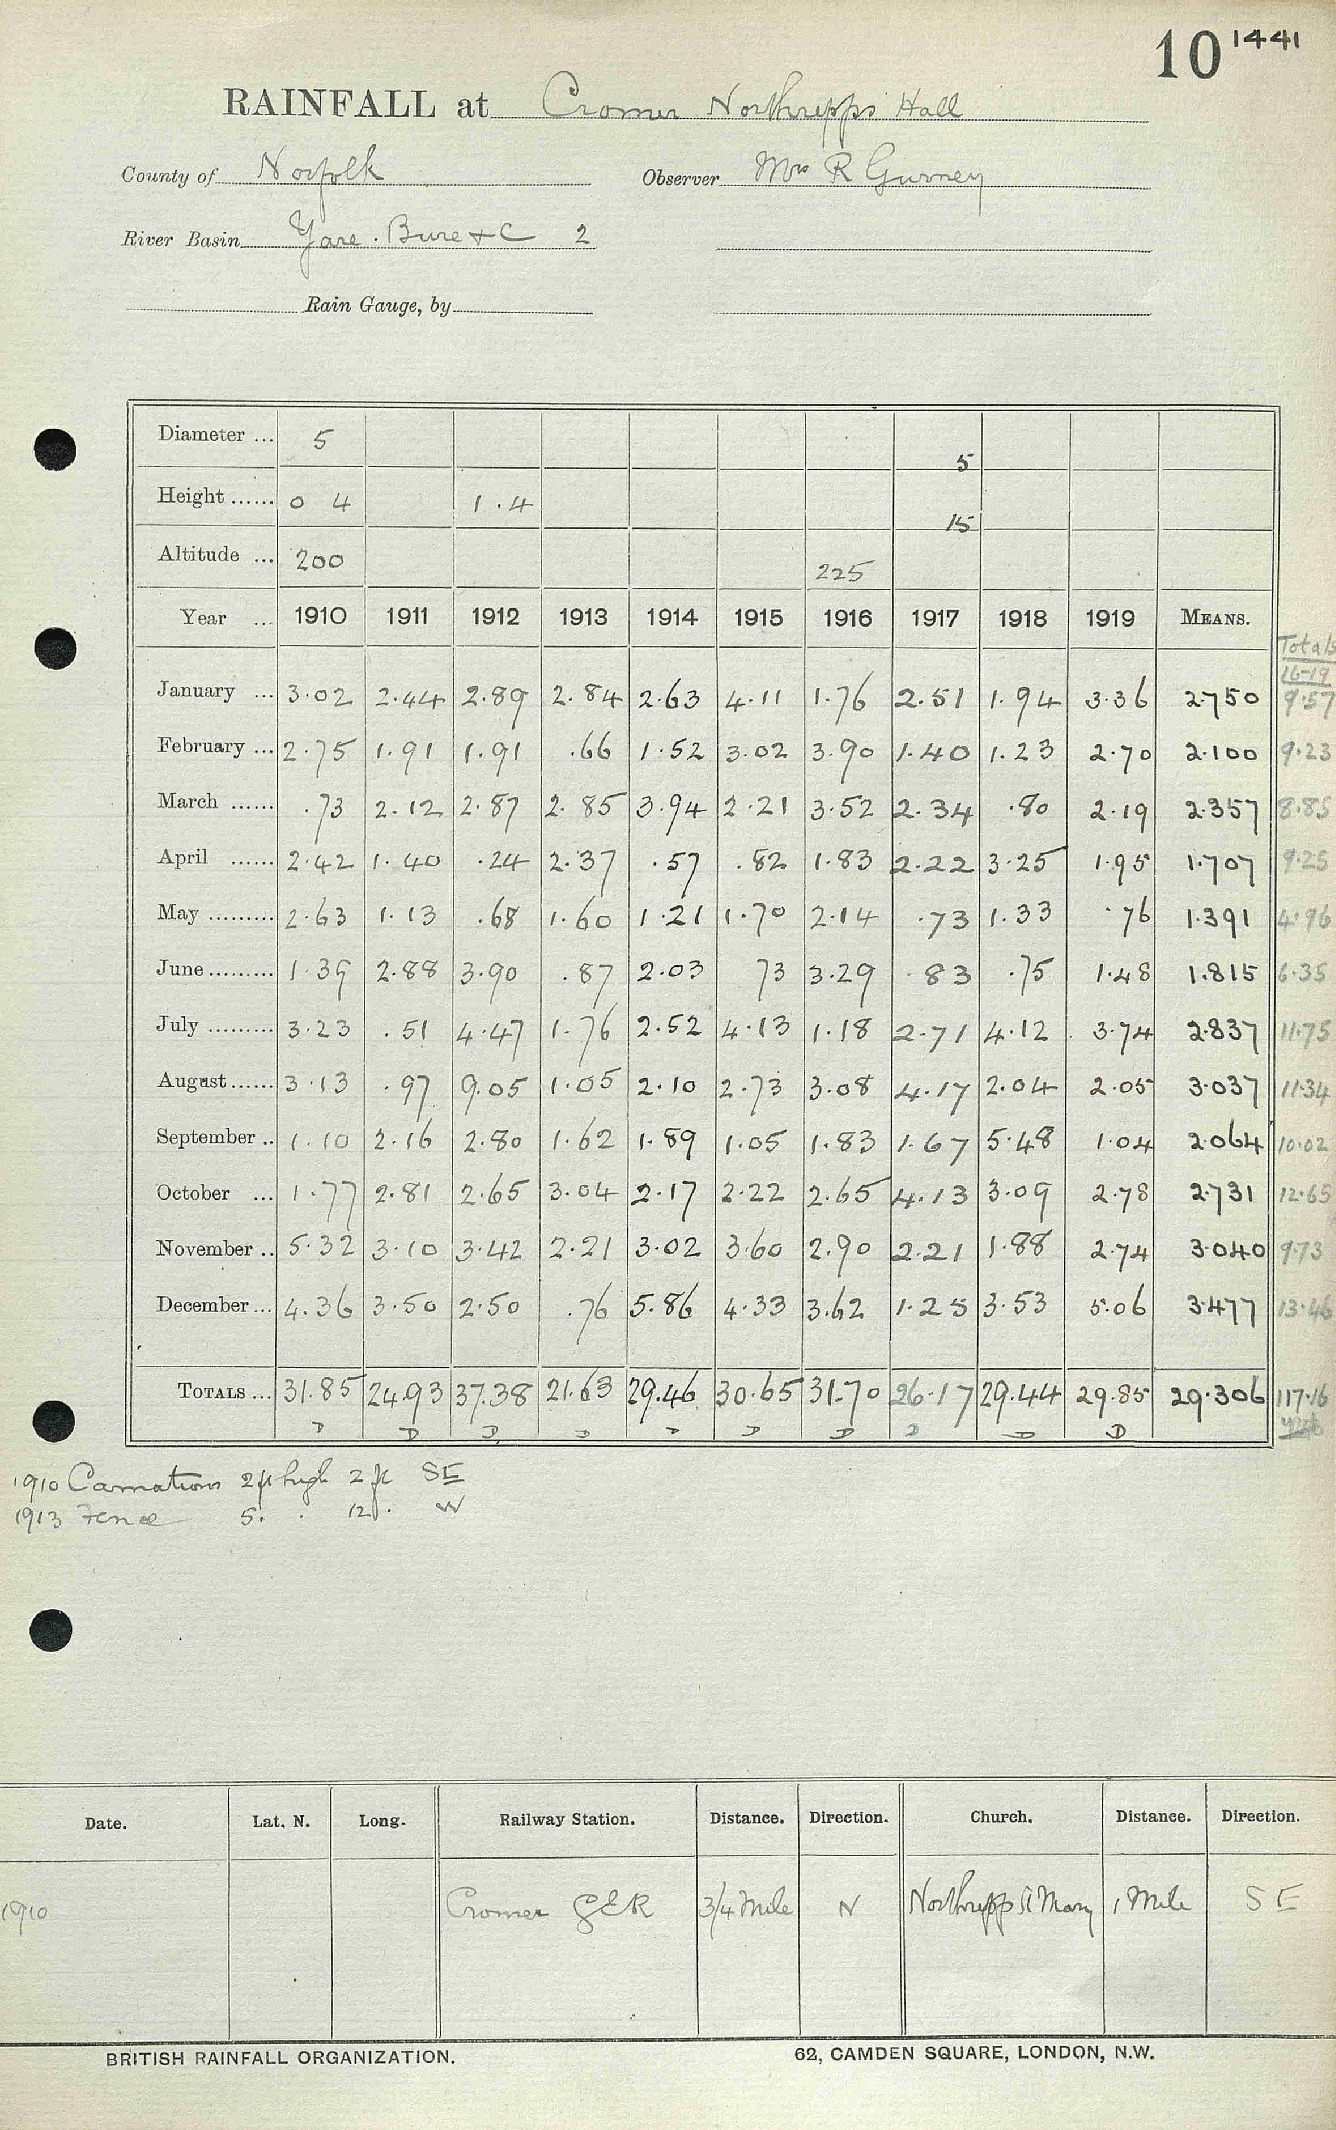 10 1441
RAINFALL at Cromer Northrepps Hall
County of Norfolk Observer Mrs R Gurney
River Basin Yare. Bure & C 2
Rain Gauge, by
Diameter ... 5 5
Height ...... 0 4 1.4 15
Altitude ... 200 225
Year ... 1910 1911 1912 1913 1914 1915 1916 1917 1918 1919 MEANS. Totals 16-19
January ... 3.02 2.44 2.89 2.84 2.63 4.11 1.76 2.51 1.94 3.36 2.750 9.57
February ... 2.75 1.91 1.91 .66 1.52 3.02 3.90 1.40 1.23 2.70 2.100 9.23
March ...... .73 2.12 2.87 2.85 3.94 2.21 3.52 2.34 .80 2.19 2.357 8.85
April ...... 2.42 1.40 .24 2.37 .57 .82 1.83 2.22 3.25 1.95 1.707 9.25
May ......... 2.63 1.13 .68 1.60 1.21 1.70 2.14 .73 1.33 .76 1.391 4.96
June ......... 1.39 2.88 3.90 .87 2.03 73 3.29 .83 .75 1.48 1.815 6.35
July ......... 3.23 .51 4.47 1.76 2.52 4.13 1.18 2.71 4.12 3.74 2.837 11.75
August ...... 3.13 .97 9.05 1.05 2.10 2.73 3.08 4.17 2.04 2.05 3.037 11.34
September .. 1.10 2.16 2.80 1.62 1.89 1.05 1.83 1.67 5.48 1.04 2.064 10.02
October ... 1.77 2.81 2.65 3.04 2.17 2.22 2.65 4.13 3.09 2.78 2.731 12.65
November .. 5.32 3.10 3.42 2.21 3.02 3.60 2.90 2.21 1.88 2.74 3.040 9.73
December ... 4.36 3.50 2.50 .76 5.86 4.33 3.62 1.25 3.53 5.06 3.477 13.46
TOTALS ... 31.85 24.93 37.38 21.63 29.46 30.65 31.70 26.17 29.44 29.85 29.306 117.16
D D D D D D D D D D
1910 Carnations 2ft high 2 ft SE
1913 Fence 5. . 12 . W
Date. Lat. N. Long. Railway Station. Distance. Direction. Church. Distance. Direction.
1910 Cromer GER 3/4 Mile N Northrepps St Mary 1 Mile S E
BRITISH RAINFALL ORGANIZATION. 62, CAMDEN SQUARE, LONDON, N.W.